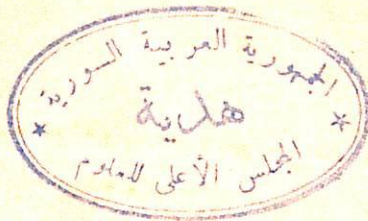 الجمهورية العربية السورية
هدية
المجلس الأعلى للعلوم